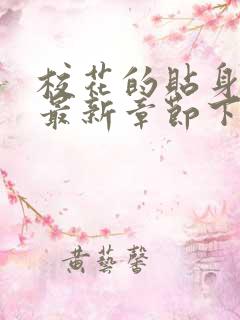 校花的貼身
最新章節下
黄藝馨